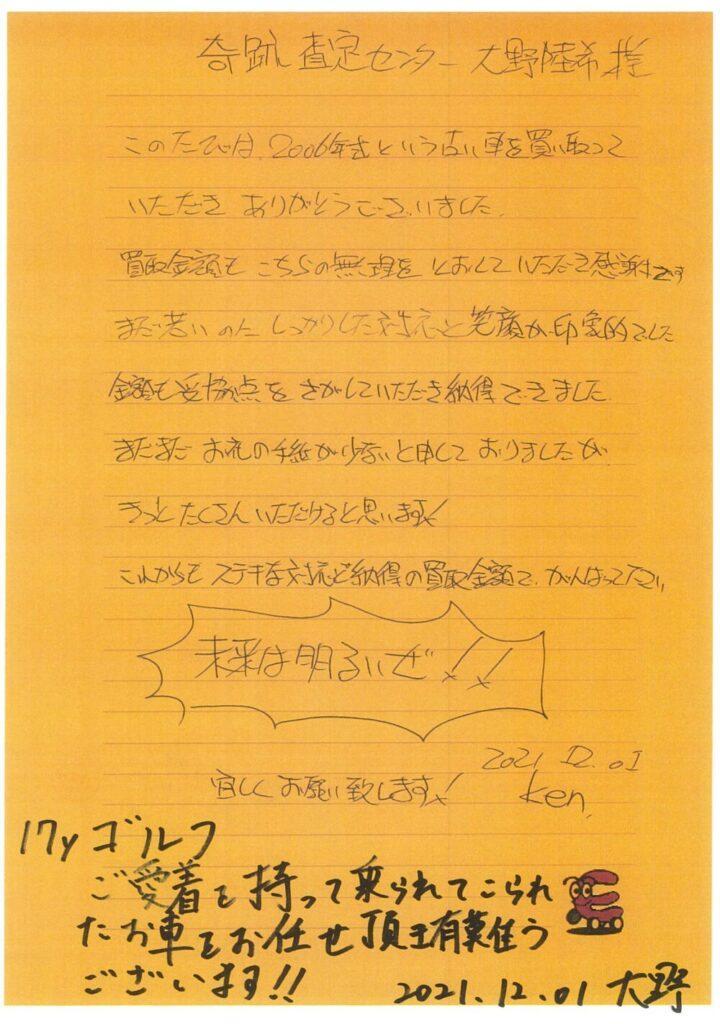 奇跡 査定センター 大野陸希 様
このたびは、2006年式という古い車を買い取って
いただき ありがとうございました。
買取金額も こちらの無理を とおして いただき感謝です
まだ若いのに しっかりした対応と笑顔が印象的でした
金額も妥協点を さがしていただき納得できました。
まだまだ お礼の手紙が少ないと申して おりましたが
きっと たくさん いただけると思います!
これからも ステキな対応と納得の買取金額で、がんばって下さい
未来は明るいぜ!!
2021.12.01
宜しく お願い致します! Ken.
17y ゴルフ
ご愛着を持って乗られてこられ
たお車をお任せ頂き有難う
ございます!!
2021.12.01 大野